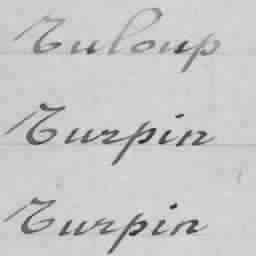 Tuloup
Turpin
Turpin